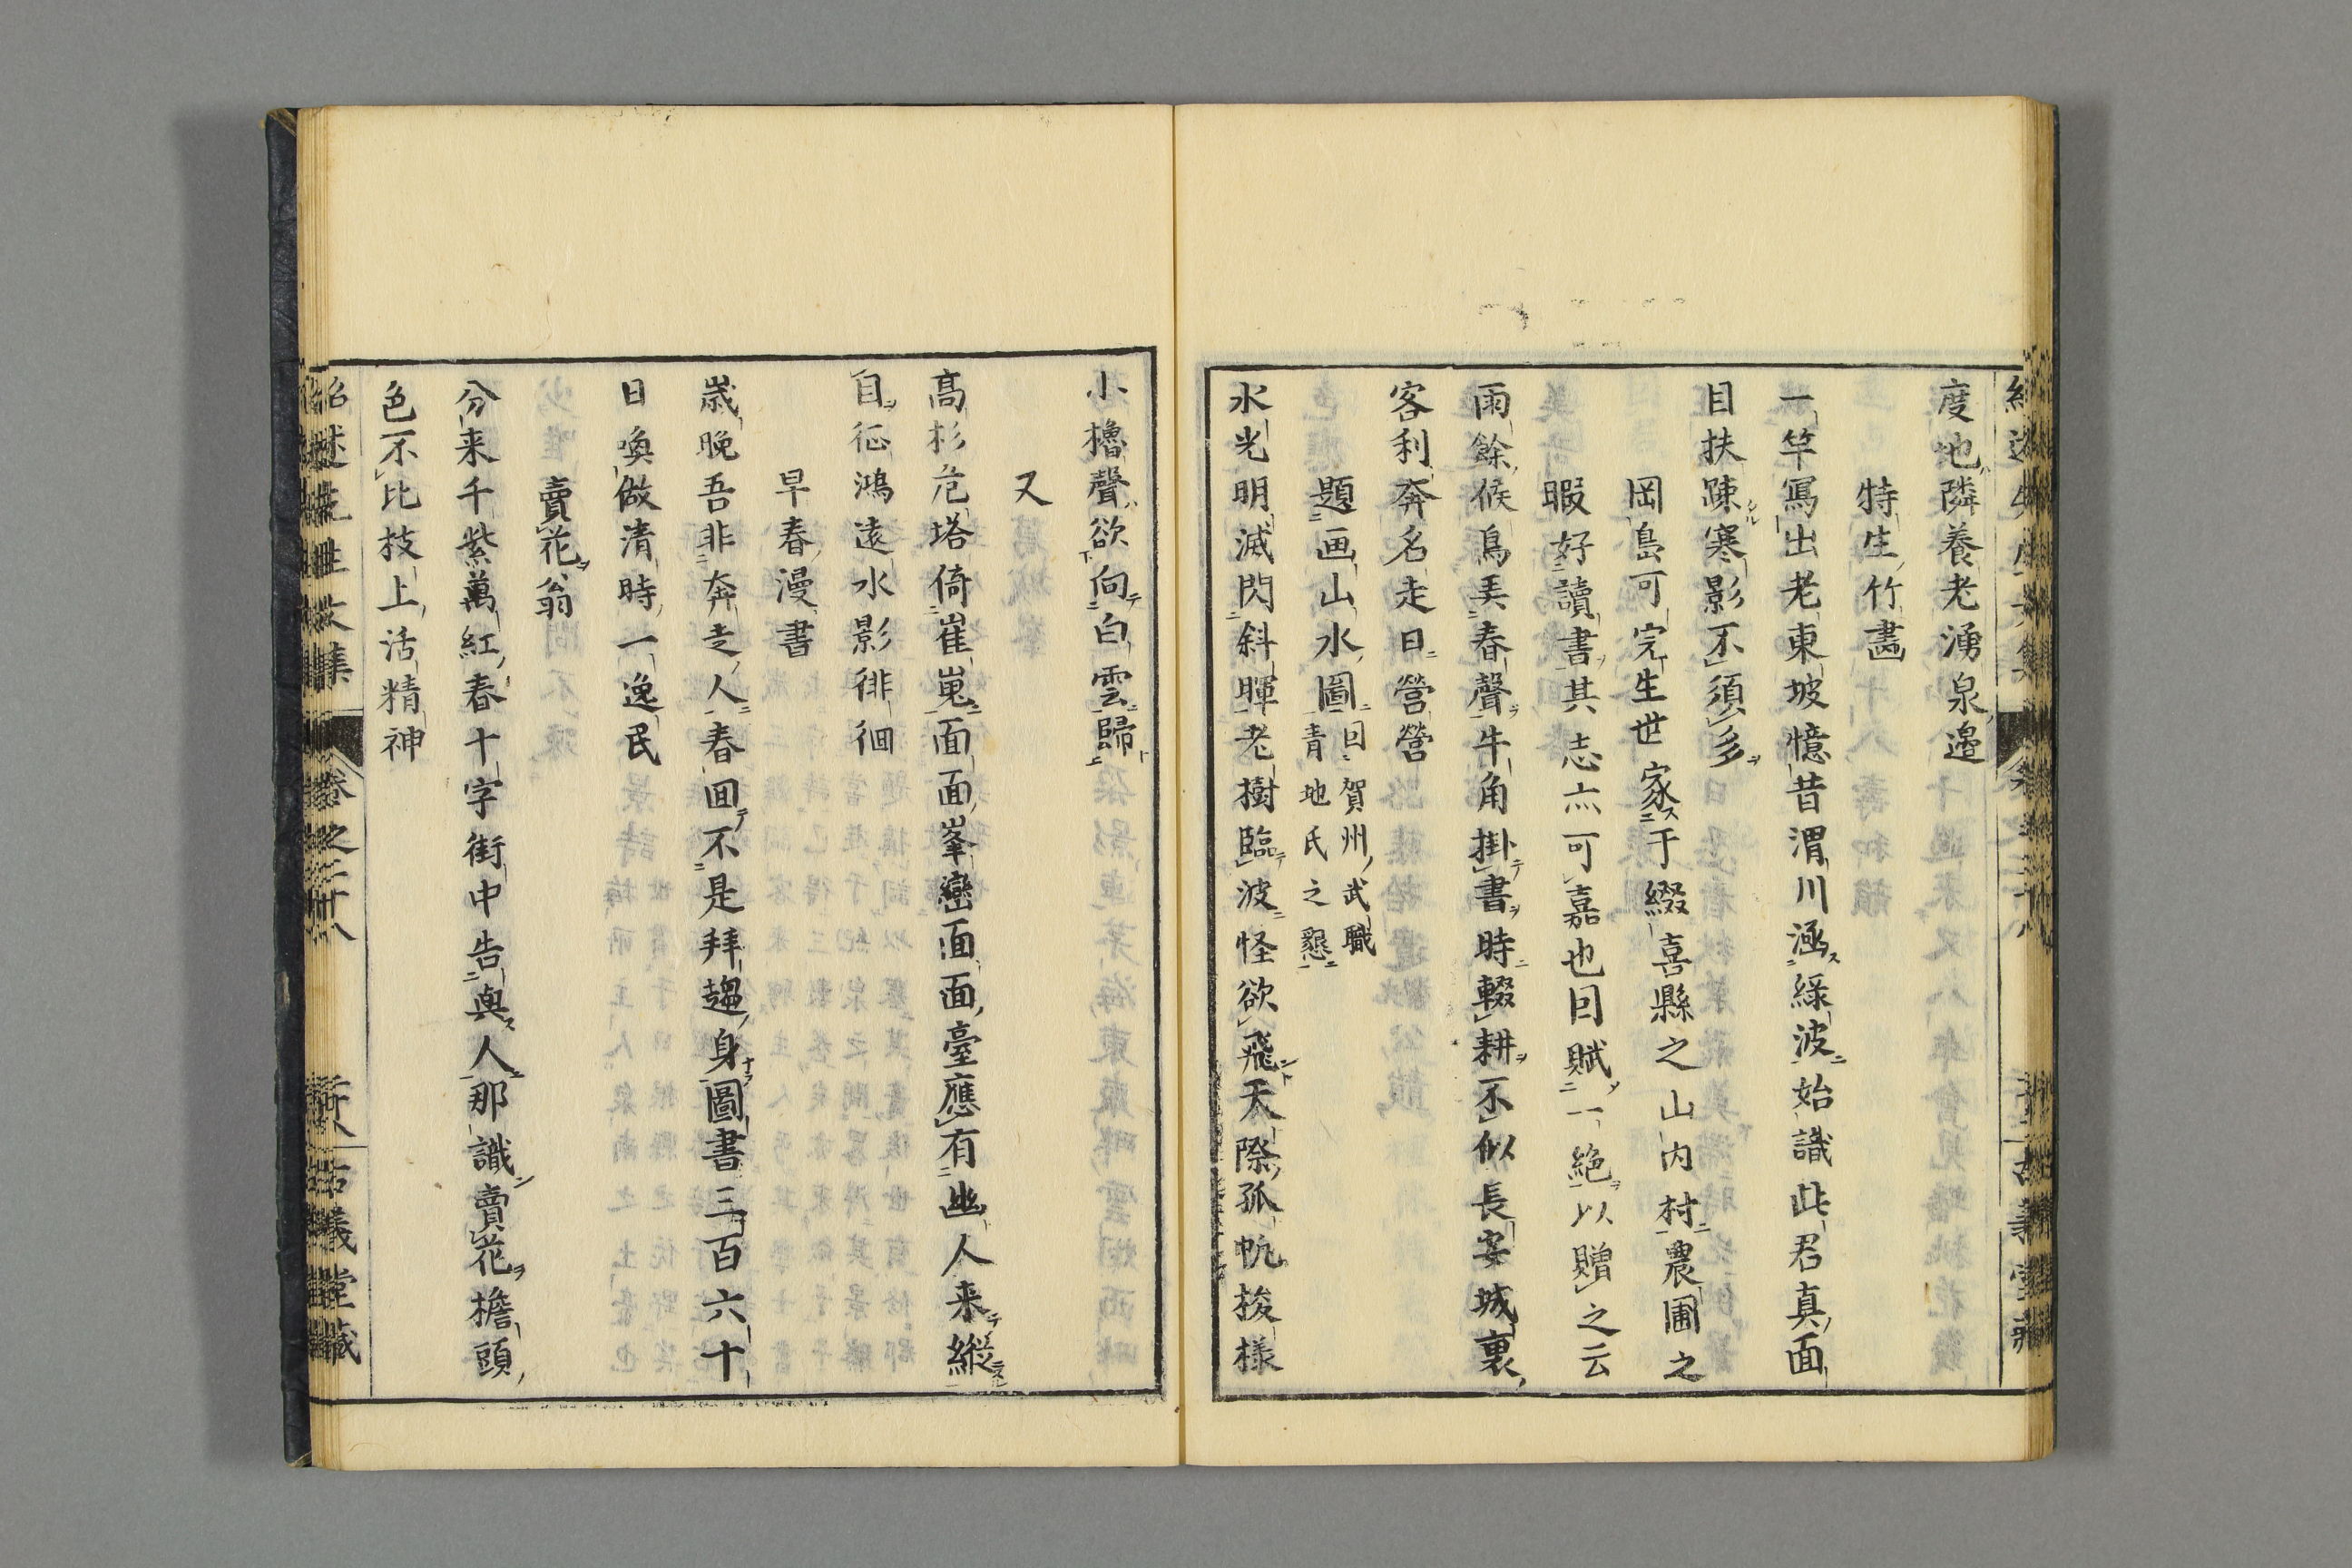 度地隣養老湧泉邊
特生竹畵
一竿寫出老東坡憶昔渭川涵綠波始識此君真面
目扶踈寒影不須多
岡島可完生世家于綴喜縣之山内村農圃之
暇好讀書其志亦可嘉也因賦一絶以贈之云
雨餘候鳥弄春聲牛角掛書時輟耕不似長安城裏
客利奔名走日營營
題画山水圖因賀州武職
青地氏之懇
水光明滅閃斜暉老樹臨波怪欲飛天際孤帆梭樣
小櫓聲欲向白雲歸
又
髙杉危塔倚崔嵬面面峯巒面面臺應有幽人来縱
目征鴻遠水影徘徊
早春漫書
歳晩吾非奔走人春回不是拜趨身圖書三百六十
日喚做清時一逸民
賣花翁
分来千紫萬紅春十字街中告與人那識賣花擔頭
色不比枝上活精神
紹述先生文集 卷之二十八 古義堂藏